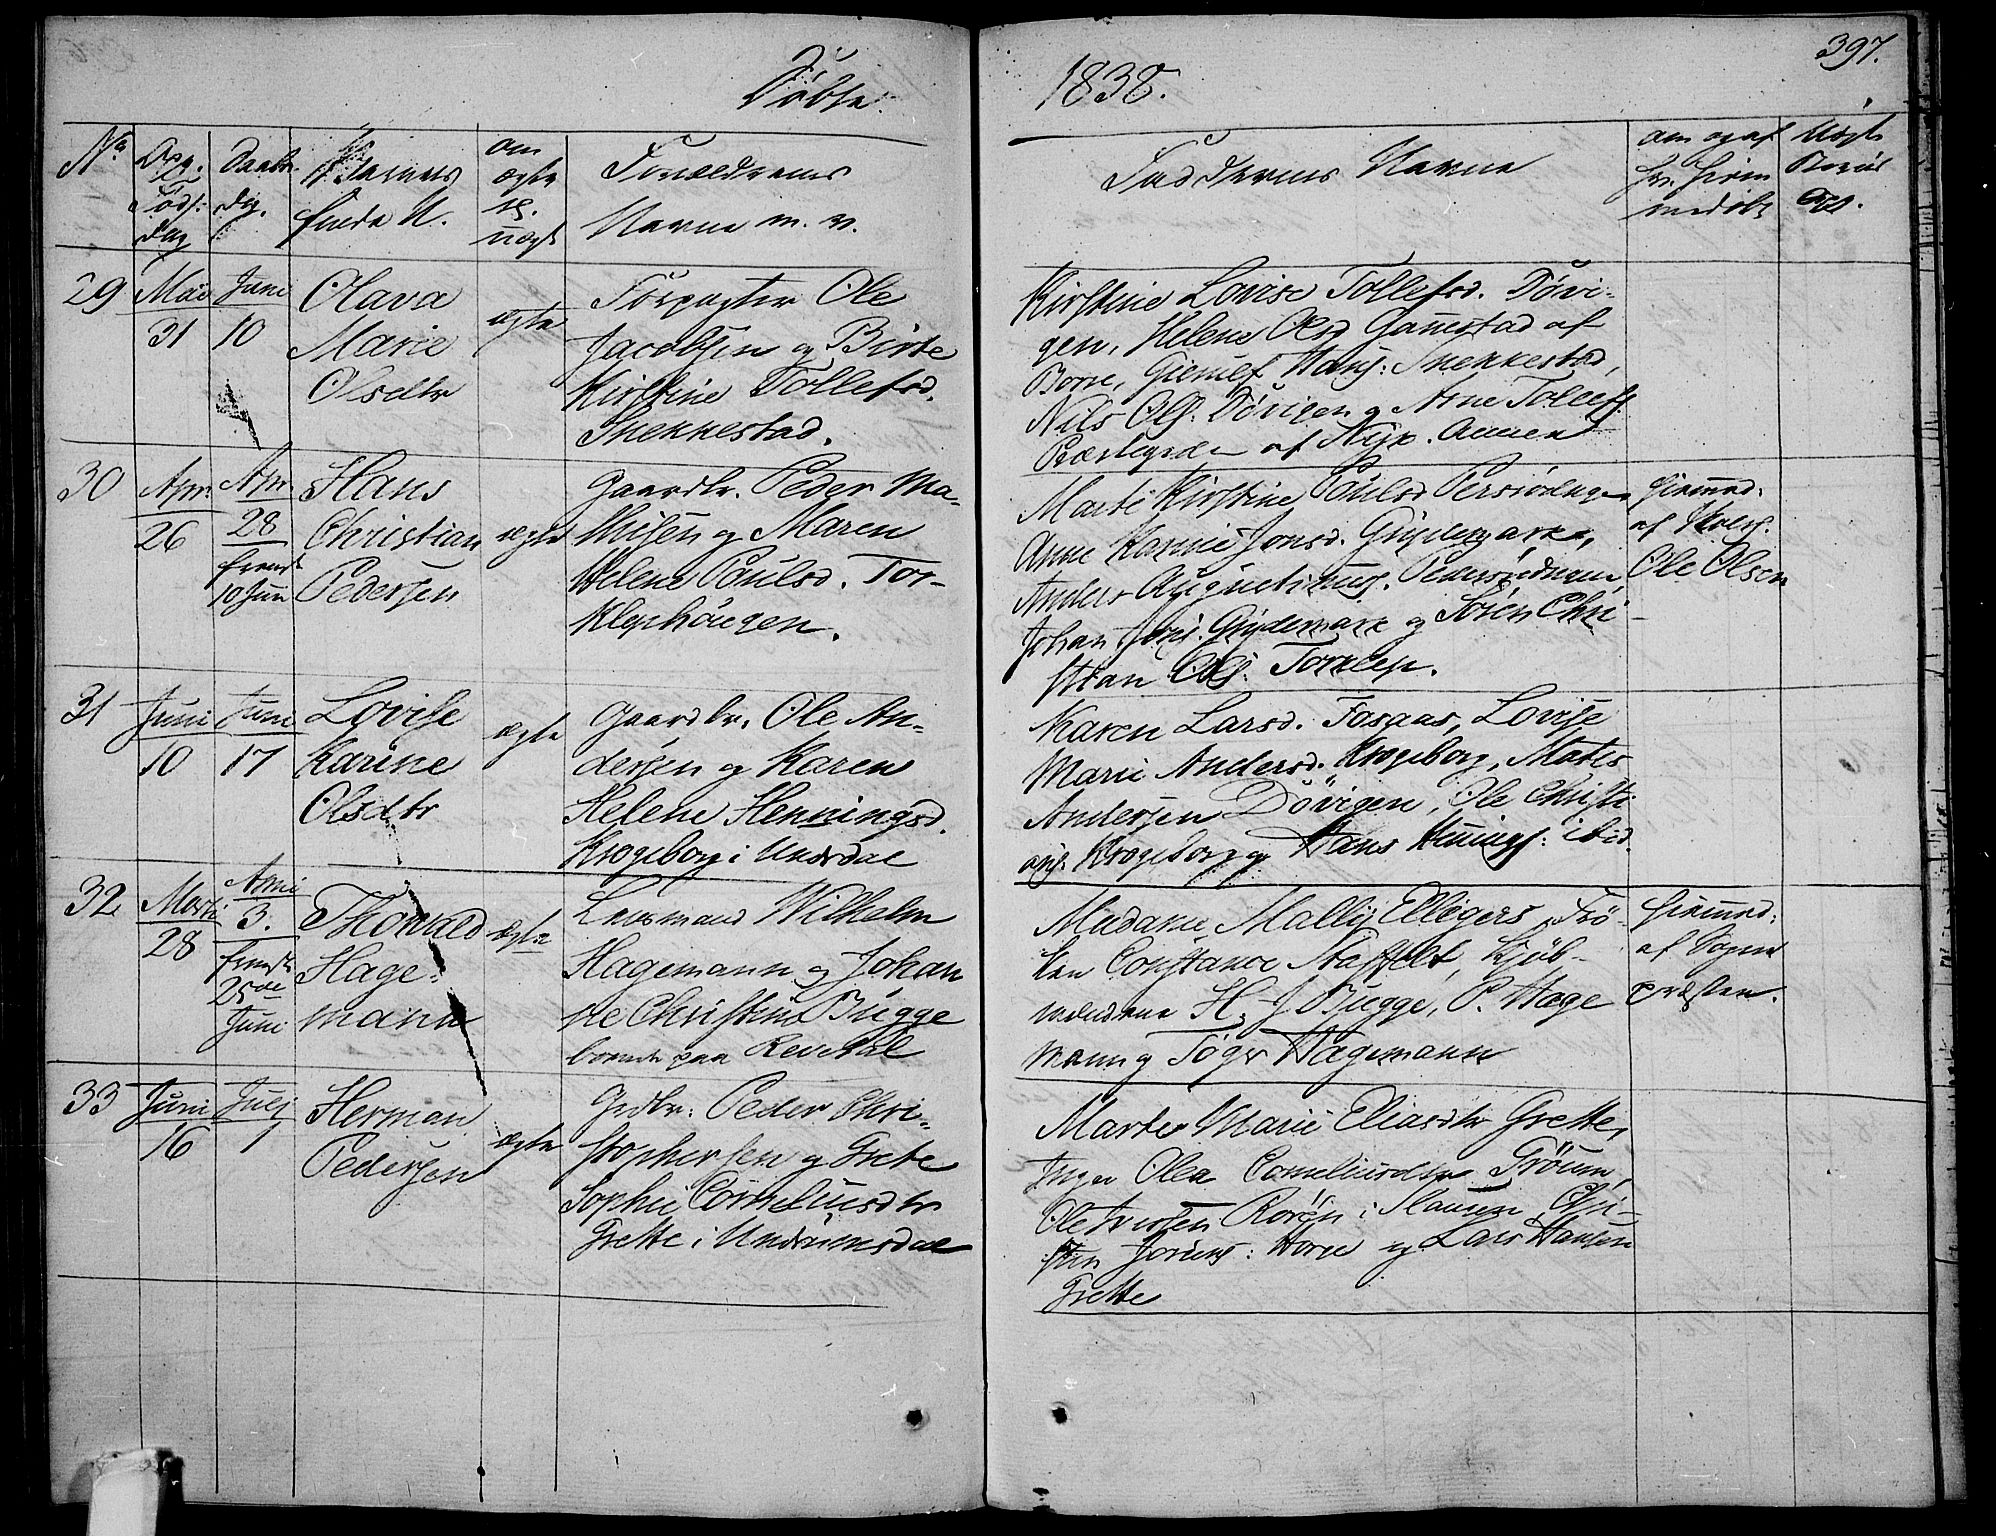 Döbte
1838.
397.
No
Aar. Föds: dag
Daabs dag.
Barnets fulde N.
om ægte el. uægt
Forældrenes Navne m. v.
Faddernes Navne
om og af hv. hiemmedöbt
29
Mai 31
Juni 10
Olava
Marie
Olsdtr
ægte
Ole
Jacobsen og Birte
Kirstine Tollefsd.
Snekkestad.
Kirstine Lovise Tollefsd. Dövi-
gen, Helene Olsd Gannestad af
Borre, Hans: Snekkestad,
Nils Ols: Dövigen og Arne Tollefs:
af Nyk. Annex
30
Apr: 26
Apr. 28
fremst.
10 Juni
Hans
Christian
Pedersen
ægte
Gaardbr. Peder Ma-
thisen og Maren
Helene Poulsd. Tor-
klephougen.
Marte Kirstine Poulsd
Anne Karine Jonsd. Grydemark,
Anders
Johan Grydemark og Sören Chri-
stian Ols: Torklep.
hiemmed:
af Skoleh.
Ole Olsen
31
Juni 10
Juni 17
Lovise
Karine
Olsdtr
ægte
Gaardbr. Ole An-
dersen og Karen
Helene Henningsd.
Krogeborg i Undrdal
Karen Larsd. Faraas, Lovise
Marie Andersd. Krogeborg, Mates
Andersen Dövigen, Ole Christi
ans: Krogeborg og Hans Hennings: ibid.
32
Marti 28
April 3.
fremst.
25de
Juni
Thorvald
Hage-
mann
ægte
Lensmand Wilhelm
Hagemann og Johan
ne Christine Bugge
boende paa Revetal
Madame Mally Elligers, Frö-
ken Constance Staffelt, Kjöb-
mændene H. J Bugge, P. Hage
mann og Töger Hagemann
hiemmed:
af Sogne
præsten.
33
Juni 16
Juli 1
Herman
Pedersen
ægte
Grdbr: Peder Chri-
stophersen og Grete
Sophie Corneliusdtr
Grette i Undrumsdal
Marte Marie Eliasdtr Grette,
Inger Olea Corneliusdtr
Ole Iversen i Slauen, Chri-
sten og Lars Hansen
Grette